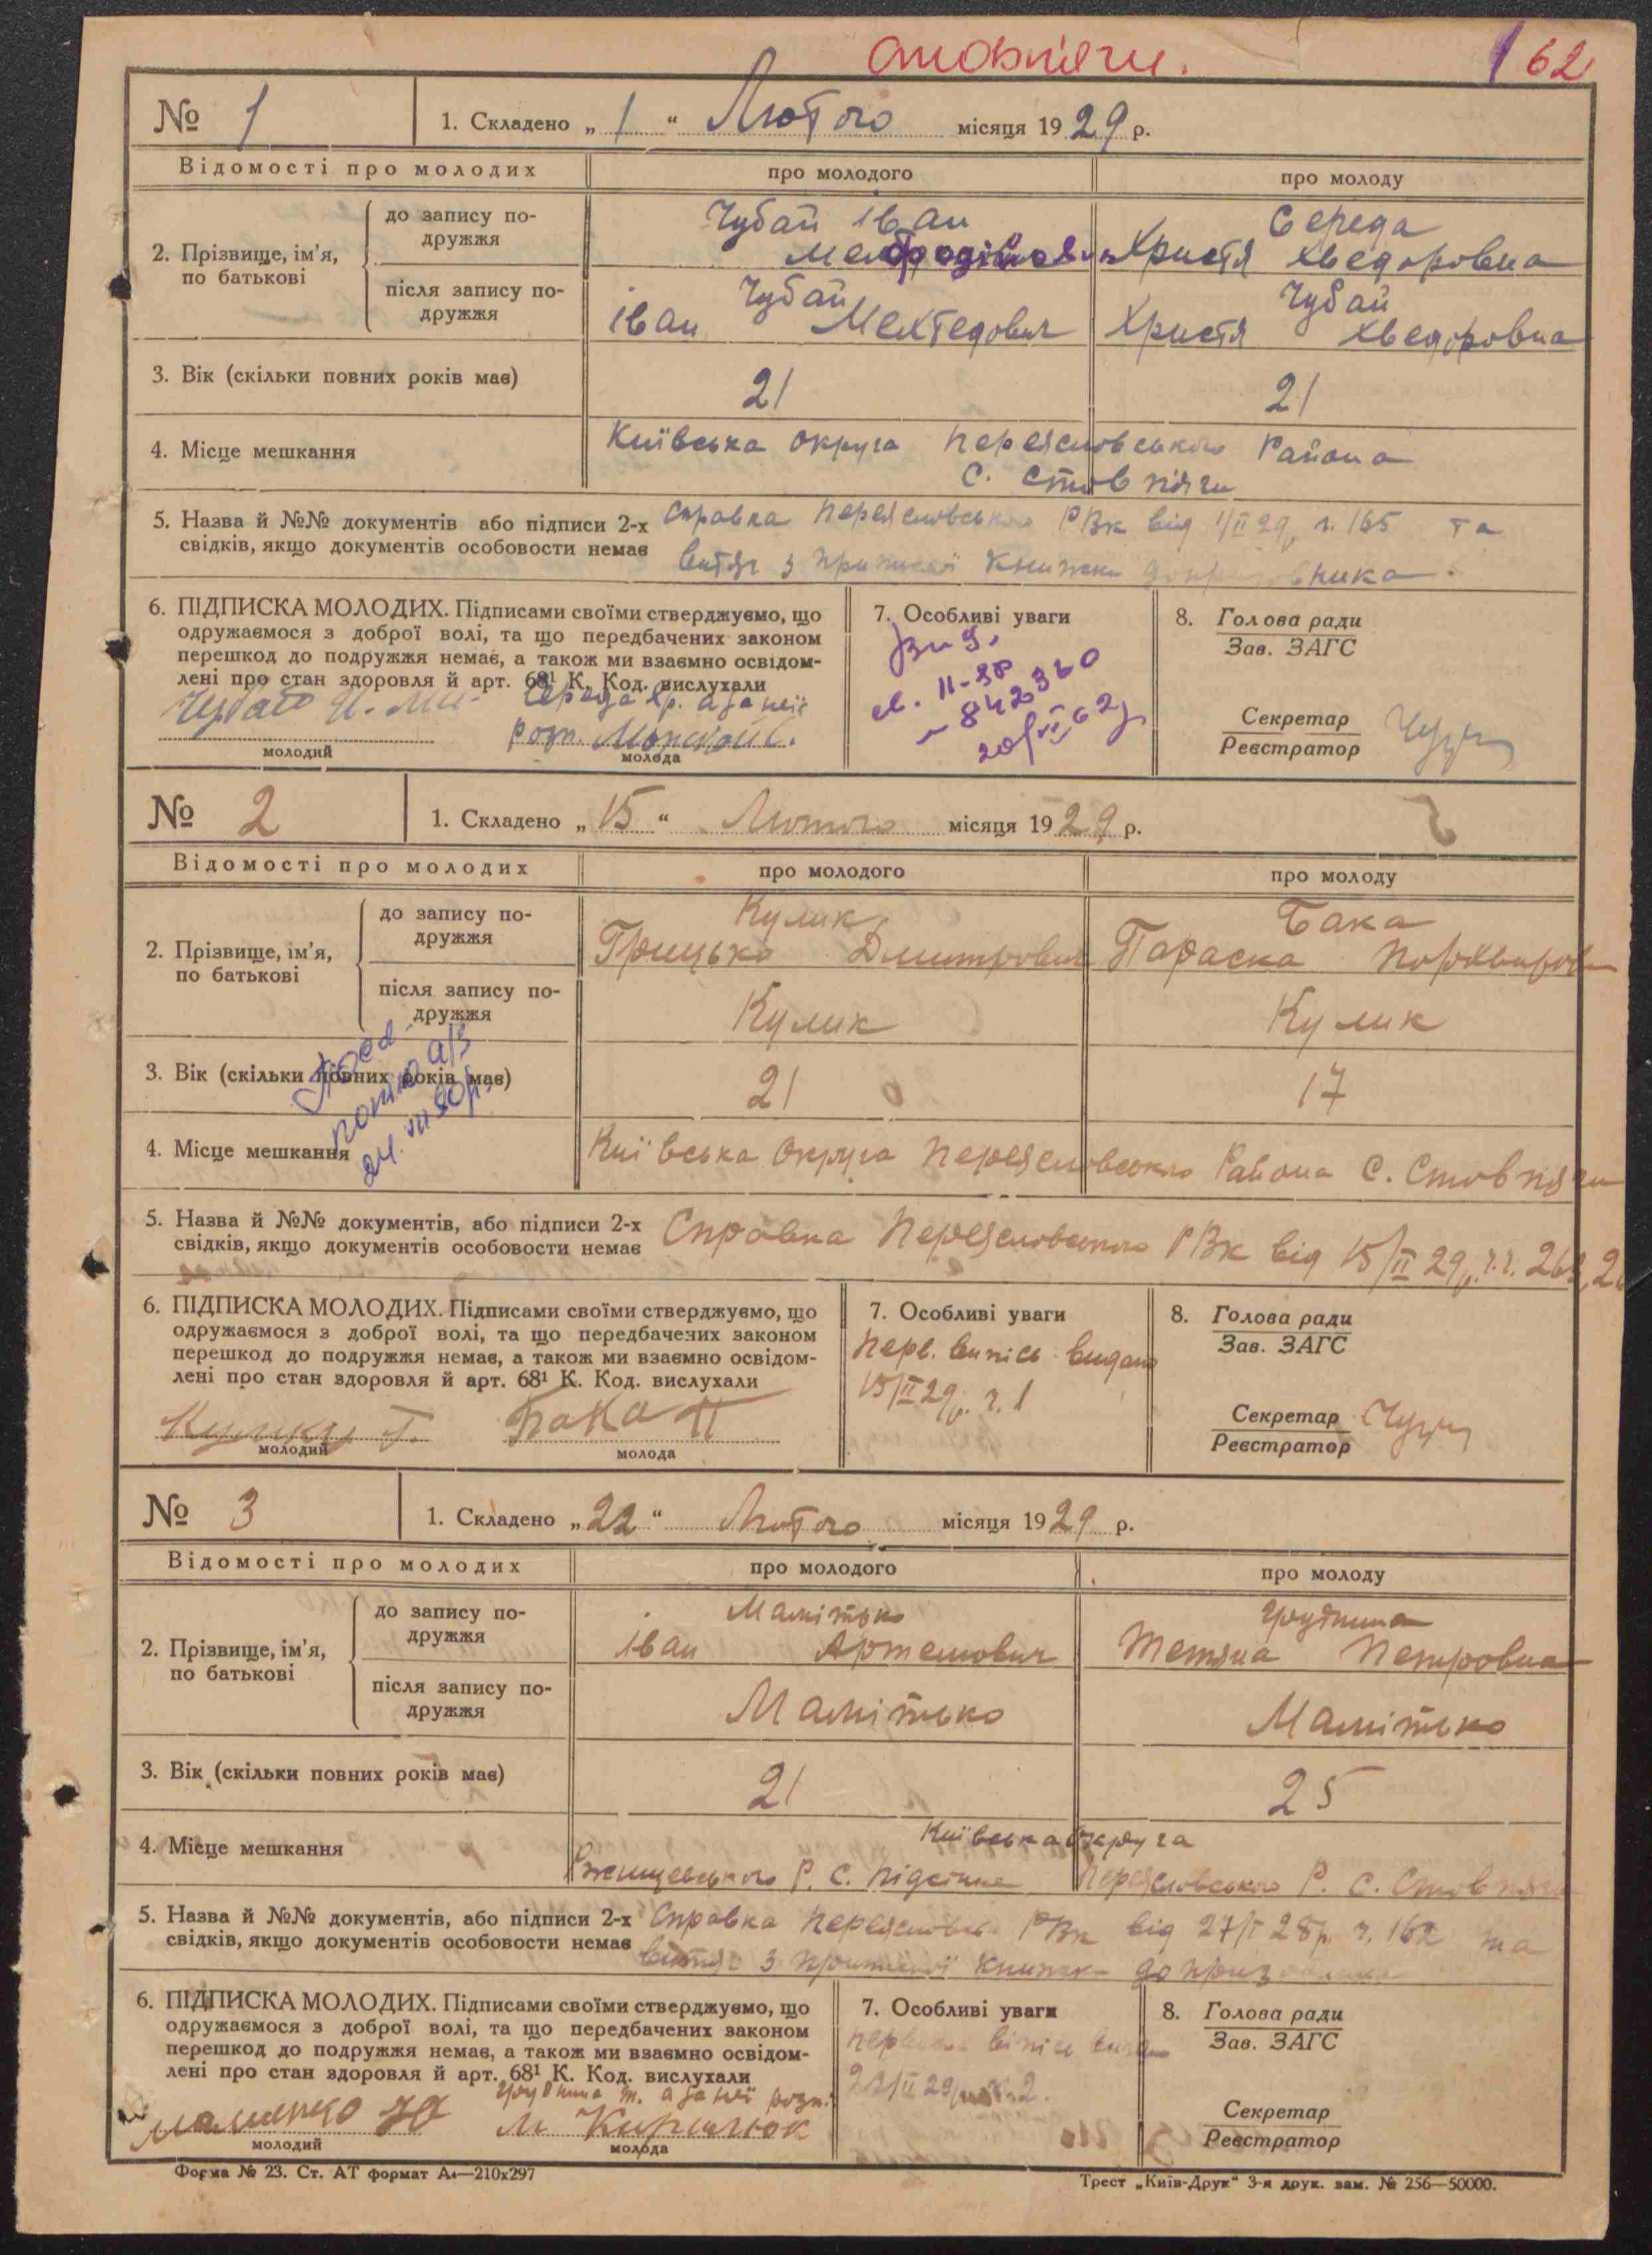 62
№ 1 1. Складено „1“ Лютого місяця 1929 р.
Відомості про молодих про молодого про молоду
2. Прізвище, ім'я, по батькові
до запису подружжя
Чубай Іван Середа
Христя Хведоровна
після запису подружжя
Чубай Чубай
Іван Мехтедович Христя Хведоровна
3. Вік (скільки повних років має) 21 21
4. Місце мешкання Київська округа Переясловського Района
С. Стовпяги
5. Назва й №№ документів або підписи 2-х Справка Переясловського РВК від 1/II 29р ч. 165 та
свідків, якщо документів особовости немає витяг з книжки
6. ПІДПИСКА МОЛОДИХ. Підписами своїми стверджуємо, що
одружаємося з доброї волі, та що передбачених законом
перешкод до подружжя немає, а також ми взаємно освідом-
лені про стан здоровля й арт. 68¹ К. Код. вислухали
Середа Хр. а за неї
розп.
молодий молода
7. Особливі уваги
8. Голова ради
Зав. ЗАГС
Секретар
Реєстратор
№ 2 1. Складено „15“ Лютого місяця 1929 р.
Відомості про молодих про молодого про молоду
2. Прізвище, ім'я, по батькові
до запису подружжя
Кулик Бака
Грицько Дмитрович Параска
після запису подружжя
Кулик Кулик
3. Вік (скільки повних років має) 21 17
4. Місце мешкання Київська округа Переясловського Района С. Стовпяги
5. Назва й №№ документів, або підписи 2-х Справка Переясловського РВК від 15/II 29р. ч.ч.
свідків, якщо документів особовости немає
6. ПІДПИСКА МОЛОДИХ. Підписами своїми стверджуємо, що
одружаємося з доброї волі, та що передбачених законом
перешкод до подружжя немає, а також ми взаємно освідом-
лені про стан здоровля й арт. 68¹ К. Код. вислухали
Бака П
молодий молода
7. Особливі уваги
Перв. випись видано
15/II 29р. ч. 1
8. Голова ради
Зав. ЗАГС
Секретар
Реєстратор
№ 3 1. Складено „22“ Лютого місяця 1929 р.
Відомості про молодих про молодого про молоду
2. Прізвище, ім'я, по батькові
до запису подружжя
Мамітько
Іван Артемович Тетяна Петровна
після запису подружжя
Мамітько Мамітько
3. Вік (скільки повних років має) 21 25
4. Місце мешкання Київська округа
Ржищевського Р. С. Переясловського Р. С. Стовпяги
5. Назва й №№ документів, або підписи 2-х Справка Переясловськ РВК від 27/I 28р. ч. 162 та
свідків, якщо документів особовости немає витяг з книжки
6. ПІДПИСКА МОЛОДИХ. Підписами своїми стверджуємо, що
одружаємося з доброї волі, та що передбачених законом
перешкод до подружжя немає, а також ми взаємно освідом-
лені про стан здоровля й арт. 68¹ К. Код. вислухали
Т. а за неї розп.
М Кирилюк
молодий молода
7. Особливі уваги
22/II 29р
8. Голова ради
Зав. ЗАГС
Секретар
Реєстратор
Форма № 23. Ст. АТ формат А4—210х297 Трест „Київ-Друк“ 3-я друк. зам. № 256—50000.